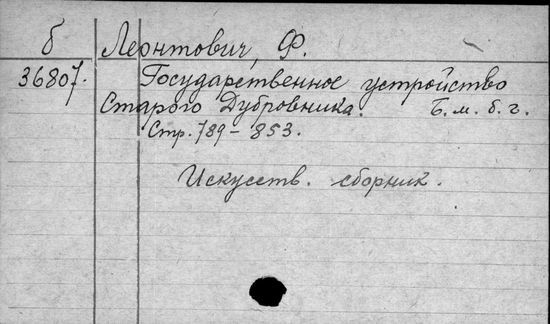 б Леонтович, Ф.
36807. Государственное устройство
Старого Дубровника. Б. м. б. г.
Стр. 789-853.
Искусств. сборник.